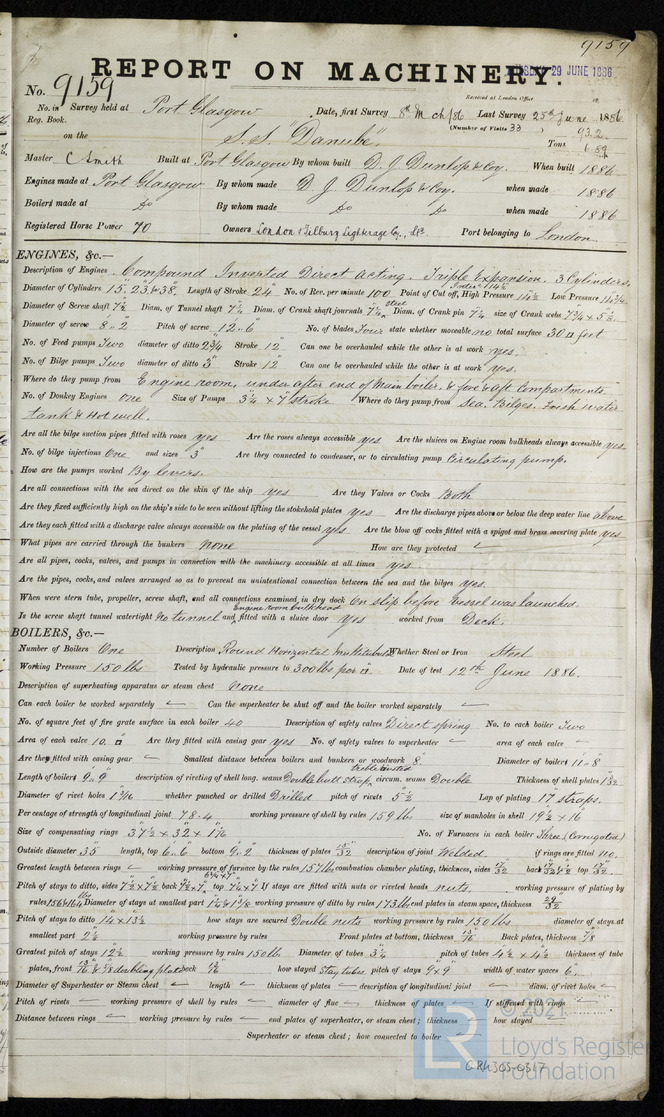 9159
REPORT ON MACHINERY.
TUESDAY 29 JUNE 1886
No. 9159
Received at London Office
No. in Survey held at Port Glasgow Date, first Survey 8th Mch/86 Last Survey 25th June 1886
Reg. Book. (Number of Visits 33)
on the S.S. "Danube" Tons 932
Master C Smith Built at Port Glasgow By whom built D. J. Dunlop & Coy. When built 1886
Engines made at Port Glasgow By whom made D. J. Dunlop & Coy. when made 1886
Boilers made at Do By whom made Do Do when made 1886
Registered Horse Power 70 Owners London & Tilbury Lighterage Co., Ltd Port belonging to London
ENGINES, &c.—
Description of Engines Compound Inverted Direct Acting. Triple Expansion. 3 Cylinders.
Diameter of Cylinders 15. 23. & 38" Length of Stroke 24" No. of Rev. per minute 100 Point of Cut off, High Pressure 14½ Low Pressure 14¾
Diameter of Screw shaft 7½ Diam. of Tunnel shaft 7¼ Diam. of Crank shaft journals 7¼ steel Diam. of Crank pin 7¼ size of Crank webs 7¾ x 5½
Diameter of screw 8-2 Pitch of screw 12-6 No. of blades Four state whether moveable no total surface 30 □ feet
No. of Feed pumps Two diameter of ditto 2¾ Stroke 12" Can one be overhauled while the other is at work yes.
No. of Bilge pumps Two diameter of ditto 3" Stroke 12" Can one be overhauled while the other is at work yes.
Where do they pump from Engine room, under after end of Main boiler, & fore & aft Compartments.
No. of Donkey Engines One Size of Pumps 3¼ x 7" stroke Where do they pump from Sea. Bilges. Fresh water
tank & Hot well.
Are all the bilge suction pipes fitted with roses yes Are the roses always accessible yes Are the sluices on Engine room bulkheads always accessible yes
No. of bilge injections One and sizes 3" Are they connected to condenser, or to circulating pump Circulating pump.
How are the pumps worked By levers.
Are all connections with the sea direct on the skin of the ship yes Are they Valves or Cocks Both
Are they fixed sufficiently high on the ship's side to be seen without lifting the stokehold plates yes Are the discharge pipes above or below the deep water line above
Are they each fitted with a discharge valve always accessible on the plating of the vessel yes Are the blow off cocks fitted with a spigot and brass covering plate yes
What pipes are carried through the bunkers none How are they protected
Are all pipes, cocks, valves, and pumps in connection with the machinery accessible at all times yes
Are the pipes, cocks, and valves arranged so as to prevent an unintentional connection between the sea and the bilges yes.
When were stern tube, propeller, screw shaft, and all connections examined in dry dock On slip before vessel was launched.
Engine room bulkhead
Is the screw shaft tunnel watertight No tunnel and fitted with a sluice door yes worked from Deck.
BOILERS, &c.—
Number of Boilers One Description Round Horizontal Multitubular Whether Steel or Iron Steel
Working Pressure 150 lbs Tested by hydraulic pressure to 300 lbs per □" Date of test 12th June 1886.
Description of superheating apparatus or steam chest none
Can each boiler be worked separately Can the superheater be shut off and the boiler worked separately
No. of square feet of fire grate surface in each boiler 40 Description of safety valves Direct spring No. to each boiler Two
Area of each valve 10. □" Are they fitted with easing gear yes No. of safety valves to superheater area of each valve
Are they fitted with easing gear Smallest distance between boilers and bunkers or woodwork 8. Diameter of boilers 11-8
Length of boilers 9-9 description of riveting of shell long. seams Double butt straps treble riveted circum. seams Double Thickness of shell plates 1 1/32
Diameter of rivet holes 1 1/16 whether punched or drilled Drilled pitch of rivets 5½ Lap of plating 17 straps.
Per centage of strength of longitudinal joint 78.4 working pressure of shell by rules 159 lb size of manholes in shell 19½ x 16
Size of compensating rings 37½ x 32 x 1 1/16 No. of Furnaces in each boiler Three (Corrugated)
Outside diameter 35" length, top 6-6 bottom 9-2 thickness of plates 15/32 description of joint Welded. if rings are fitted no.
Greatest length between rings working pressure of furnace by the rules 157 lb combustion chamber plating, thickness, sides 17/32 back top 17/32
Pitch of stays to ditto, sides 7½ x 7½ back 7½ x 7 top 7½ x 7 If stays are fitted with nuts or riveted heads nuts. working pressure of plating by
rules 156 & 164 Diameter of stays at smallest part 1¼ & 1½ working pressure of ditto by rules 173 lb end plates in steam space, thickness 29/32
Pitch of stays to ditto 14 x 13½ how stays are secured Double nuts working pressure by rules 150 lbs diameter of stays at
smallest part 2½ working pressure by rules Front plates at bottom, thickness 13/16 Back plates, thickness 7/8
Greatest pitch of stays 12½ working pressure by rules 150 lbs Diameter of tubes 3¼ pitch of tubes 4½ x 4½ thickness of tube
plates, front 13/16 & 7/8 doubling plate back 13/16 how stayed Stay tubes pitch of stays 9 x 9 width of water spaces 6.
Diameter of Superheater or Steam chest length thickness of plates description of longitudinal joint diam. of rivet holes
Pitch of rivets working pressure of shell by rules diameter of flue thickness of plates If stiffened with rings
Distance between rings working pressure by rules end plates of superheater, or steam chest; thickness how stayed
Superheater or steam chest; how connected to boiler
© 2021
LR
Lloyd's Register
Foundation